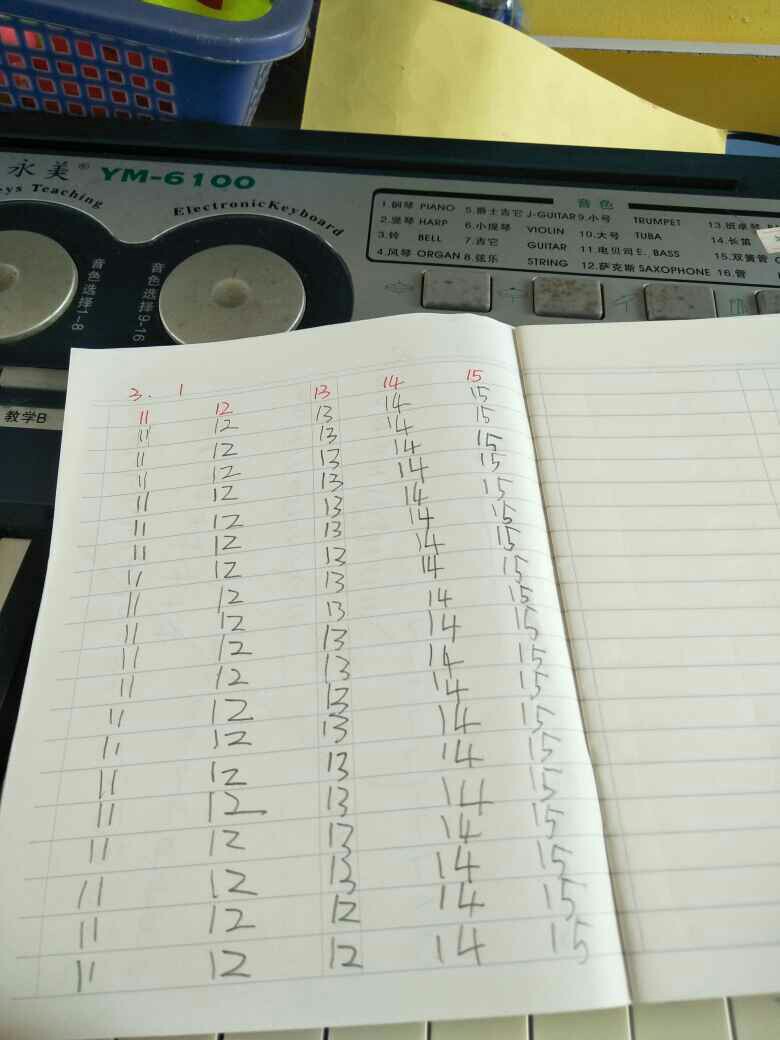 永美® YM-6100
Keys Teaching
ElectronicKeyboard
音色选择1-8
音色选择9-16
教学B
音色
1.钢琴 PIANO 5.爵士吉它 J-GUITAR 9.小号 TRUMPET
2.竖琴 HARP 6.小提琴 VIOLIN 10.大号 TUBA 14.长笛
3.铃 BELL 7.吉它 GUITAR 11.电贝司 E. BASS 15.双簧管
4.风琴 ORGAN 8.弦乐 STRING 12.萨克斯 SAXOPHONE 16.管
3. 1
11 12 13 14 15
11 12 13 14 15
11 12 13 14 15
11 12 13 14 15
11 12 13 14 15
11 12 13 14 15
11 12 13 14 15
11 12 13 14 15
11 12 13 14 15
11 12 13 14 15
11 12 13 14 15
11 12 13 14 15
11 12 13 14 15
11 12 13 14 15
11 12 13 14 15
11 12 13 14 15
11 12 13 14 15
11 12 13 14 15
11 12 12 14 15
11 12 12 14 15